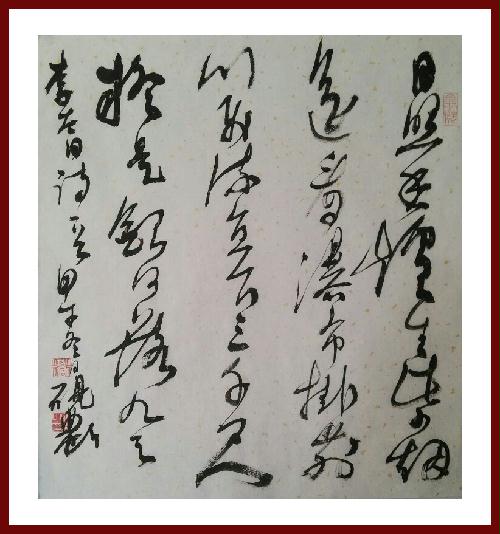 日照香爐生紫烟
遥看瀑布掛前
川飛流直下三千尺
疑是銀河落九天
李太白詩一首甲午冬